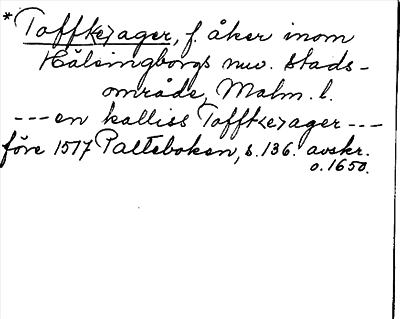 * Toffte)ager, f. åker inom
Hälsingborgs nuv. stads-
område, Malm. l.
--- en kalliss Tofft<e>ager ---
före 1517 Palteboken, s. 136. avskr.
o. 1650.